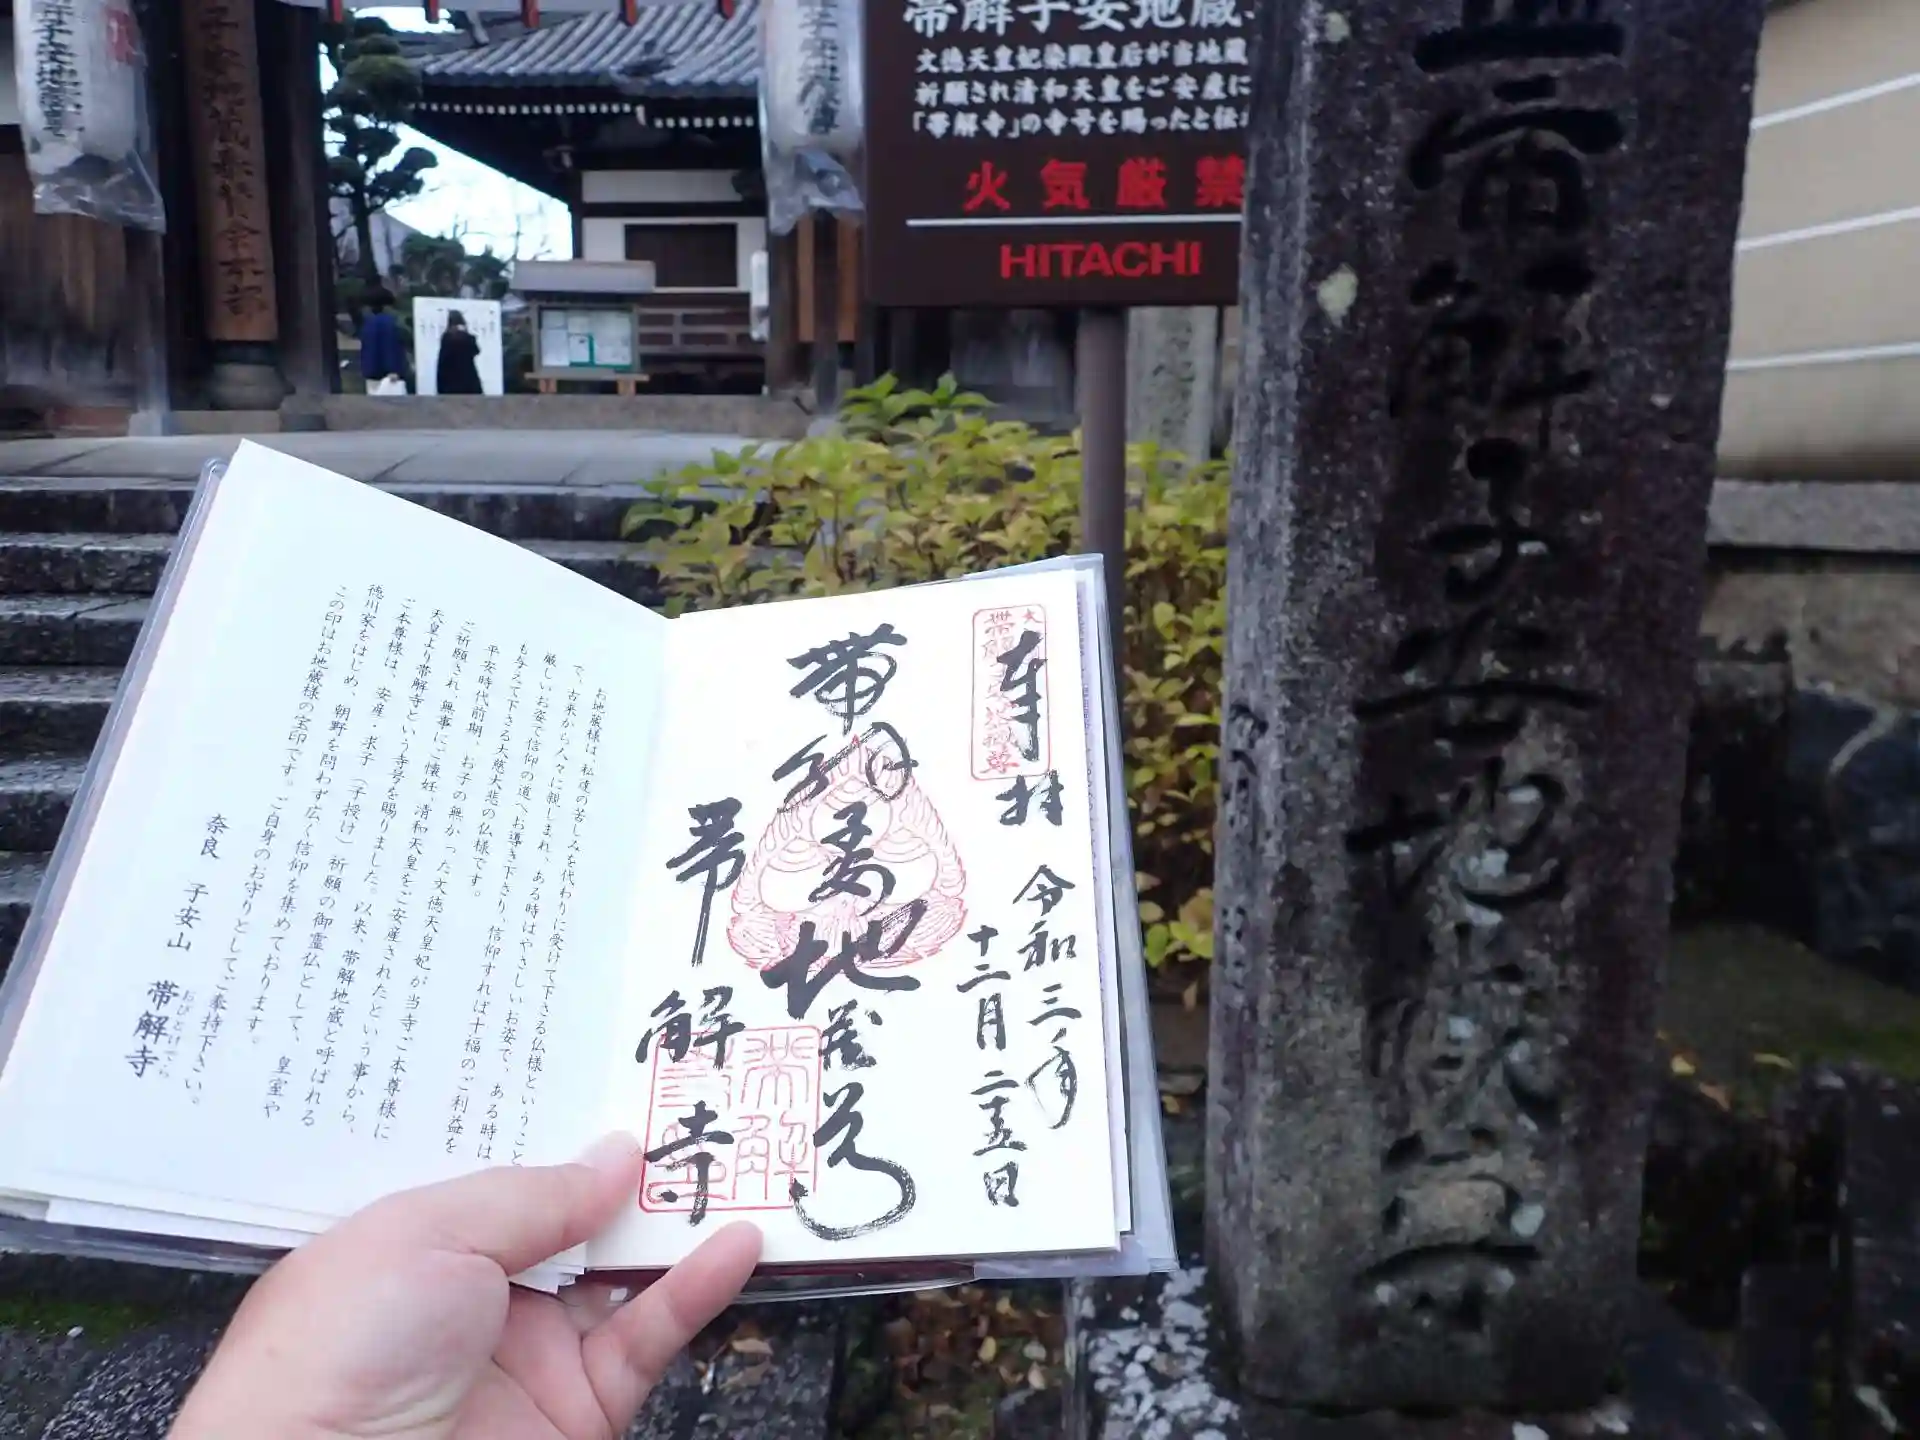 帯解子安地蔵
文徳天皇妃染殿皇后が当地蔵
祈願され清和天皇をご安産に
「帯解寺」の寺号を賜ったと伝
火気厳禁
HITACHI
帯解子安地蔵
子安地蔵
子安地蔵奉賛会本部
奉拝
令和三年
十二月二十五日
帯解子安地蔵尊
帯解寺
お地蔵様は、私達の苦しみを代わりに受けて下さる仏様ということ
で、古来から人々に親しまれ、ある時はやさしいお姿で、ある時は
厳しいお姿で信仰の道へお導き下さり、信仰すれば十福のご利益を
も与えて下さる大慈大悲の仏様です。
平安時代前期、お子の無かった文徳天皇妃が当寺ご本尊様に
ご祈願され、無事にご懐妊、清和天皇をご安産されたという事から、
天皇より帯解寺という寺号を賜りました。以来、帯解地蔵と呼ばれる
ご本尊様は、安産・求子(子授け)祈願の御霊仏として、皇室や
徳川家をはじめ、朝野を問わず広く信仰を集めております。
この印はお地蔵様の宝印です。ご自身のお守りとしてご奉持下さい。
奈良 子安山 帯解寺
おびとけでら